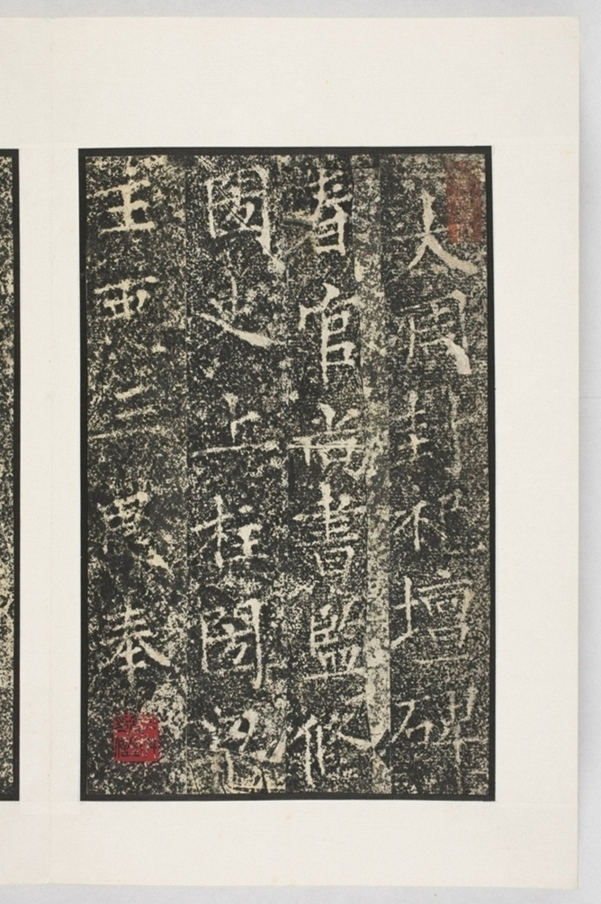 大周封祀壇碑
春官尚書監修
圀史上柱圀梁
王𢘑三思奉